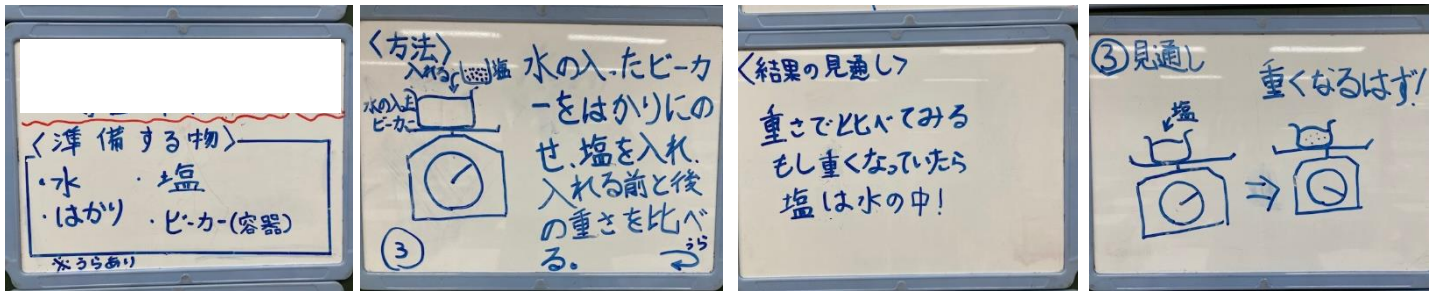 〈準備する物〉
・水
・塩
・はかり
・ビーカー(容器)
※うらあり
〈方法〉
入れる
塩
水の入った
ビーカー
水の入ったビーカ
ーをはかりにの
せ、塩を入れ、
入れる前と後
の重さを比べ
る。
③
うら
〈結果の見通し〉
重さでと比べてみる
もし重くなっていたら
塩は水の中!
③見通し
重くなるはず!
塩